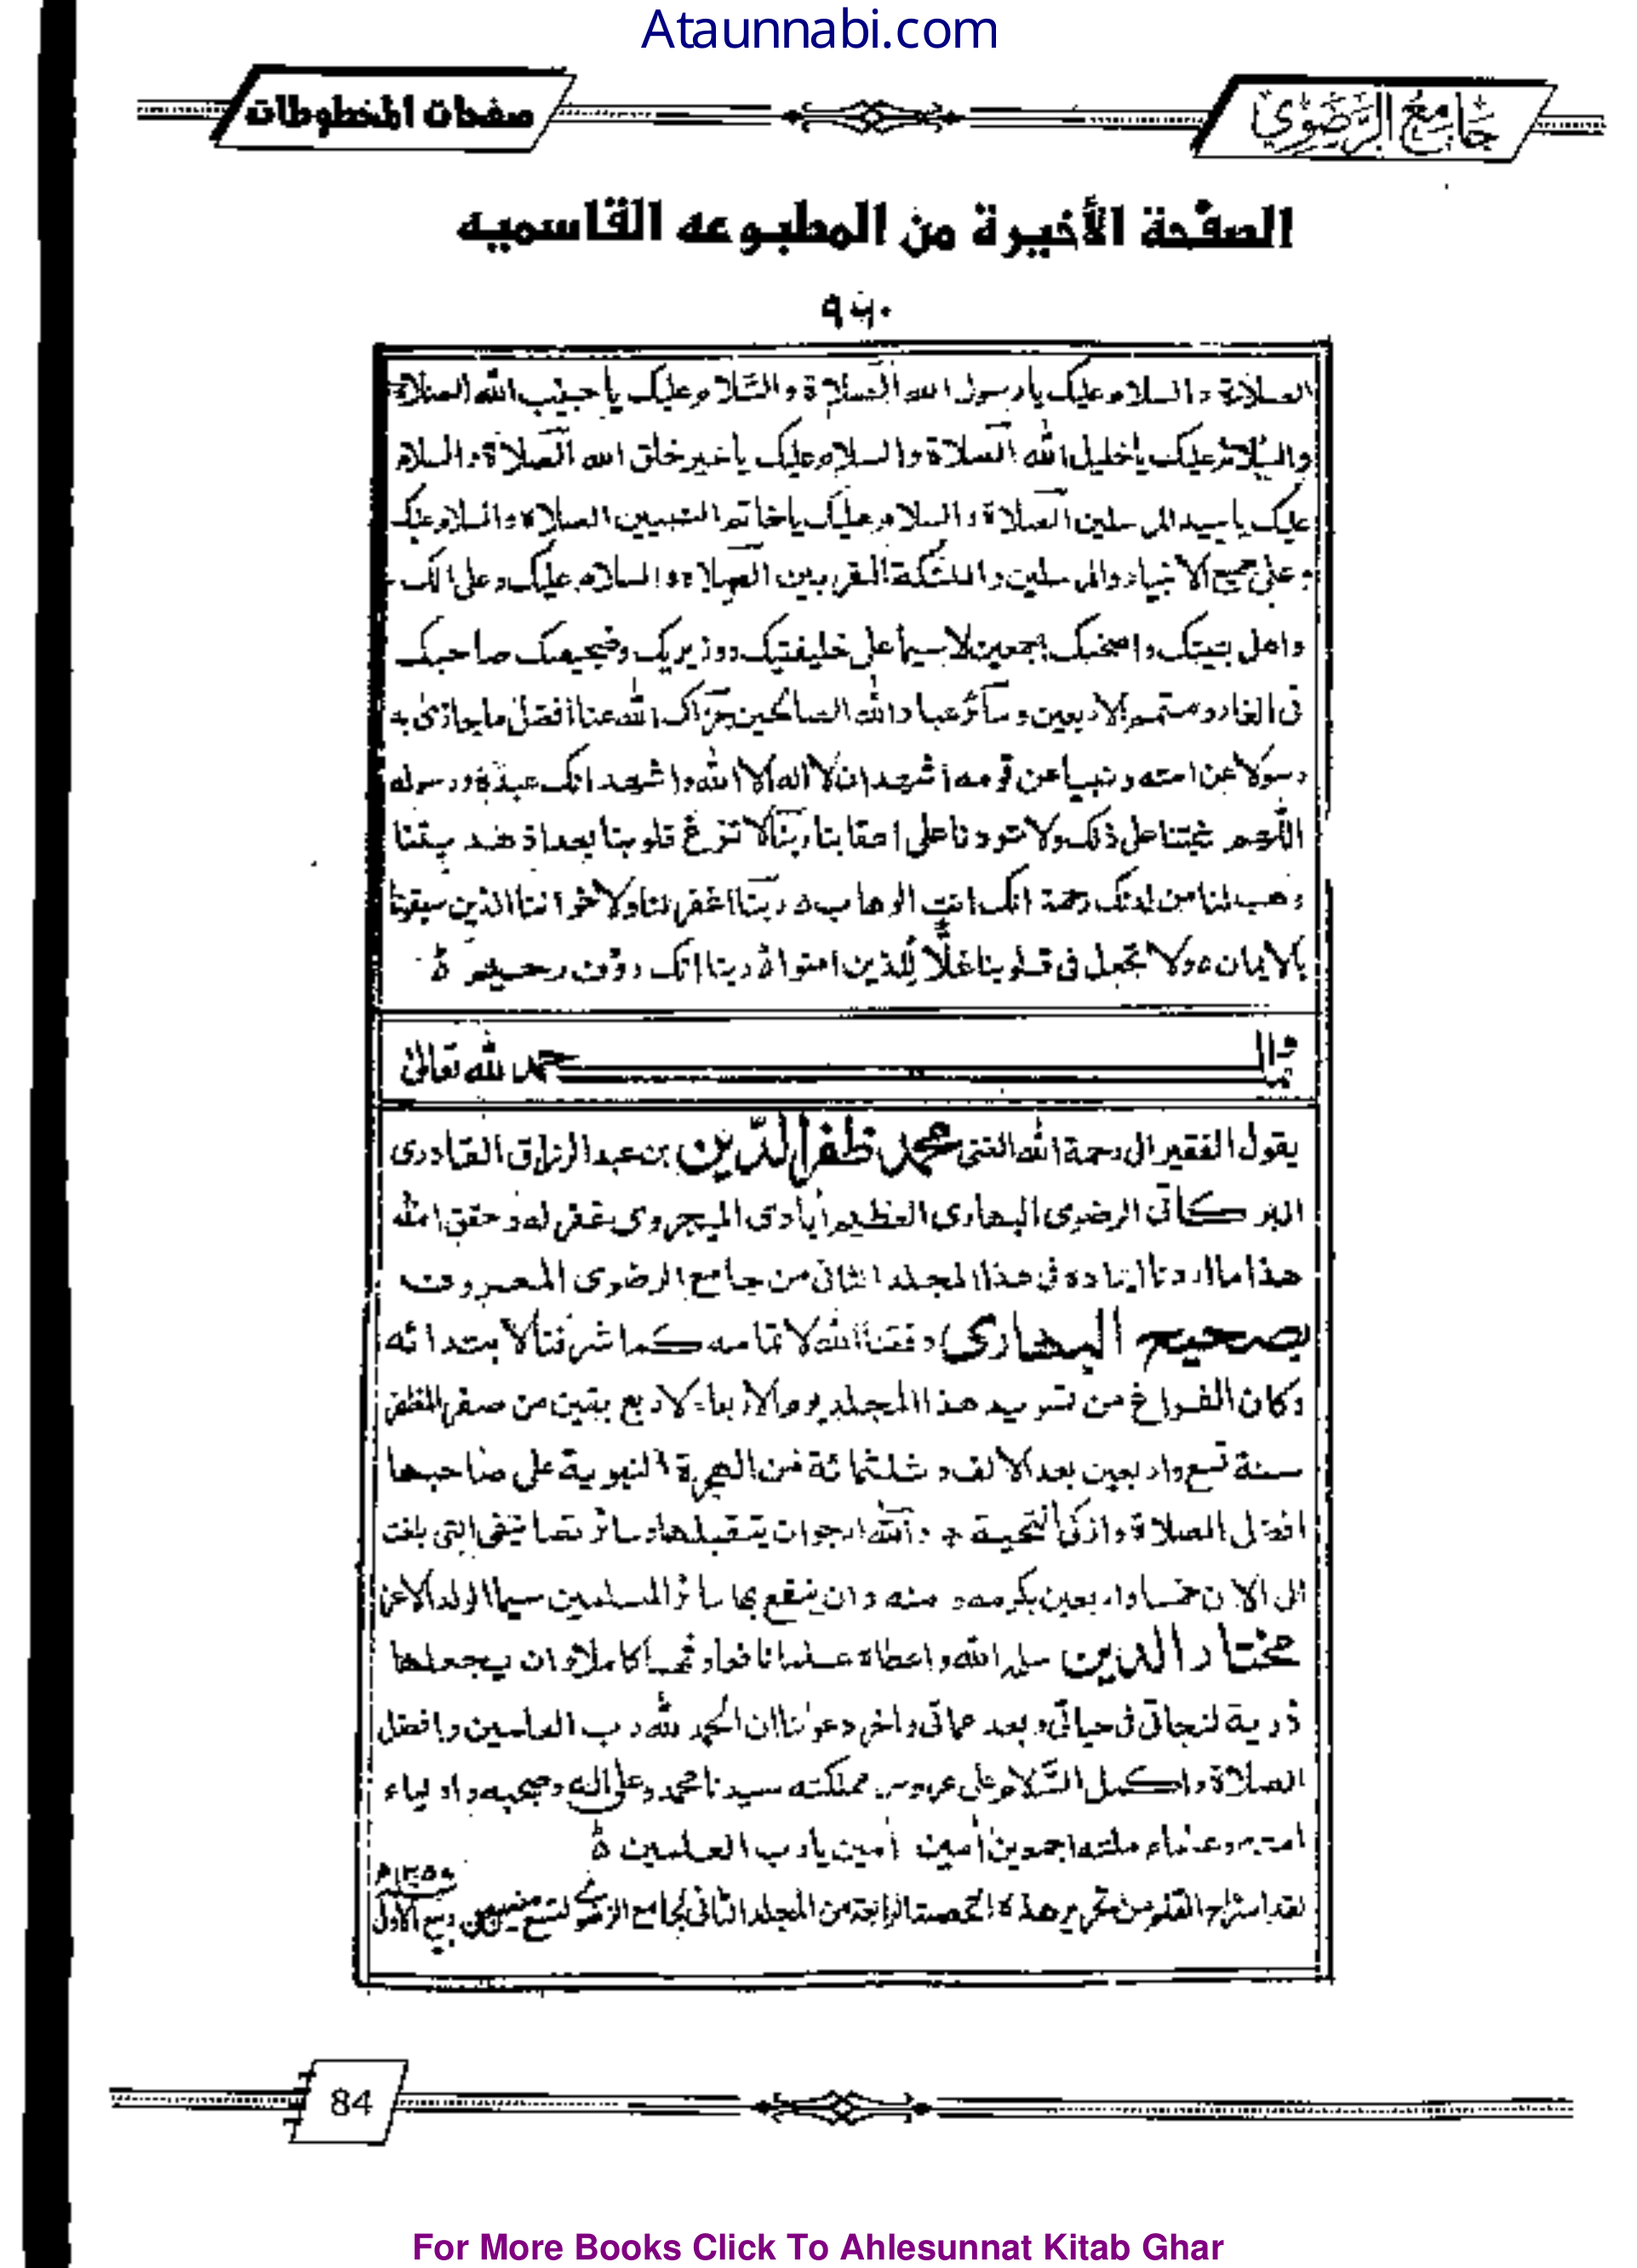 Ataunnabi.com
جَامِعُ الرَّضَوِيّ
صفحات المخطوطات
الصفحة الأخيرة من المطبوعه القاسميه
٩٦٠
الصلاة والسلام عليك يا رسول الله الصّلاة والسّلام عليك يا حبيب الله الصلاة
والسلام عليك يا خليل الله الصّلاة والسلام عليك يا خير خلق الله الصّلاة والسلام
عليك يا سيد المرسلين الصّلاة والسلام عليك يا خاتم النبيين الصلاة والسلام عليك
وعلى جميع الانبياء والمرسلين والملئكة المقربين الصلاة والسلام عليك وعلى الك
واهل بيتك واصحبك اجمعين لا سيما على خليفتيك ووزيريك وضجيعيك صاحبك
فى الغار ومتمم الاربعين وسائر عباد الله الصالحين جزاك الله عنا افضل ما جازى به
رسولا عن امته ونبيا عن قومه اشهد ان لا اله الا الله واشهد انك عبده ورسوله
اللّهم ثبتنا على ذلك ولا تردنا على اعقابنا ربّنا لا تزغ قلوبنا بعد اذ هديتنا
وهب لنا من لدنك رحمة انك انت الوهاب ه ربّنا اغفر لنا ولاخواننا الذين سبقونا
بالايمان ه ولا تجعل فى قلوبنا غلًّا لّلذين امنوا ربنا انك رؤف رحيم ه
قال حمد لله تعالى
يقول الفقير الى رحمة الله الغنى محمد ظفر الدّين بن عبد الرزاق القادرى
البركاتى الرضوى البهارى العظيم أبادى الميجروى غفر له وحقق امله
هذا ما اردنا ايراده فى هذا المجلد الثانى من جامع الرضوى المعروف
بصحيح البهارى وفقنا الله لاتمامه كما شرفنا لابتدائه
وكان الفراغ من تسويد هذا المجلد يوم الاربعاء لاربع بقين من صفر المظفر
سنة تسع واربعين بعد الالف وثلثمائة من الهجرة النبوية على صاحبها
افضل الصلاة وازكى التحية + والله ارجو ان يتقبلها وسائر تصانيفى التى بلغت
الى الان خمسا واربعين بكرمه ومنه وان ينفع بها سائر المسلمين سيما الولد الاعز
مختار الدين سلمه الله واعطاه علما نافعا وفهما كاملا وان يجعلها
ذريعة لنجاتى فى حياتى وبعد مماتى واخر دعونا ان الحمد لله رب العلمين وافضل
الصلاة واكمل السّلام على عروس مملكته سيدنا محمد وعلى اله وصحبه واولياء
امته وعلماء ملته اجمعين أمين أمين يا رب العلمين ه
لقد استراح القلم من تحرير هذه الحصة الرابعة من المجلد الثانى لجامع الرضوى لتسع مضين من ربيع الاول
84
For More Books Click To Ahlesunnat Kitab Ghar